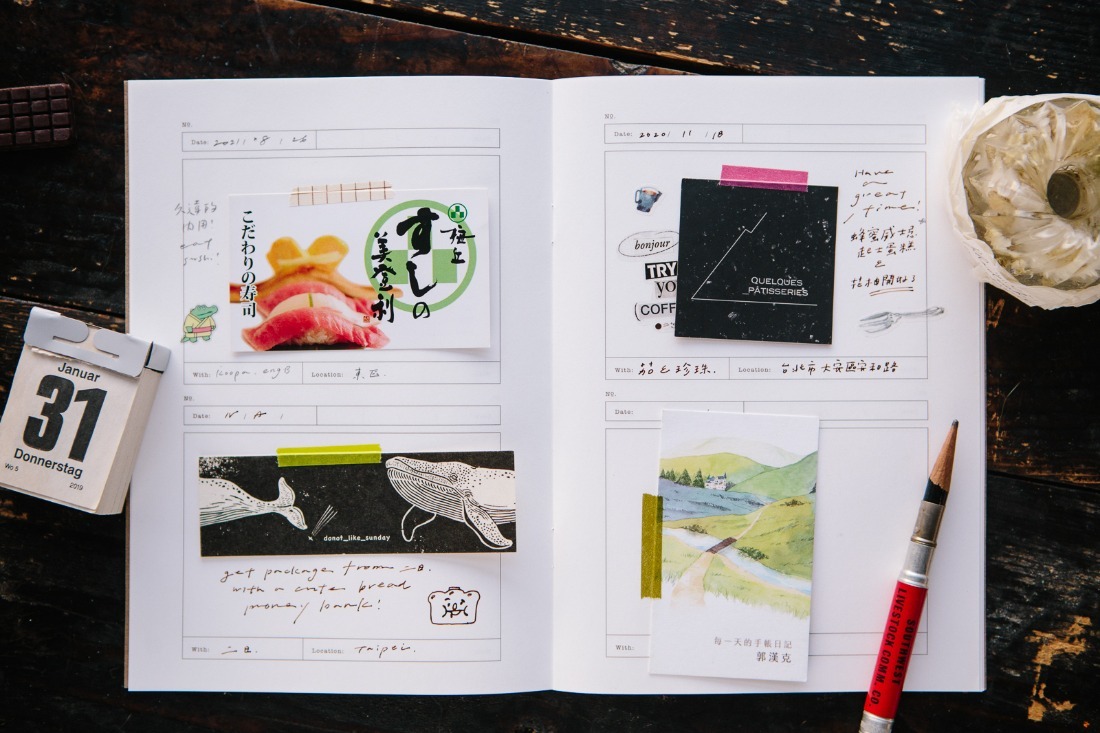 No.
Date: 2021 8 26
久違的
肉用!
eat
sushi!
こだわりの寿司
梅丘
すしの
美登利
With: Koopa. eng8
Location: 東區.
No.
Date: N A
donot_like_sunday
get packages from 二日.
with a cute bread
money bank!
With: 二日.
Location: Taipei.
Januar
31
Donnerstag
Wo 5
2019
No.
Date: 2020 11 18
bonjour
TRY
YO
COFF
QUELQUES
PÂTISSERIES
Have
a
great
time!
蜂蜜威士忌
起士蛋糕
&
With: 茄 & 珍珠.
Location: 台北市大安區安和路
No.
Date:
每一天的手帳日記
郭漢克
With:
SOUTHWEST
LIVESTOCK COMM. CO